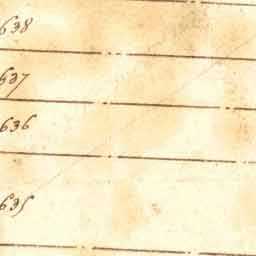 638
637
636
635